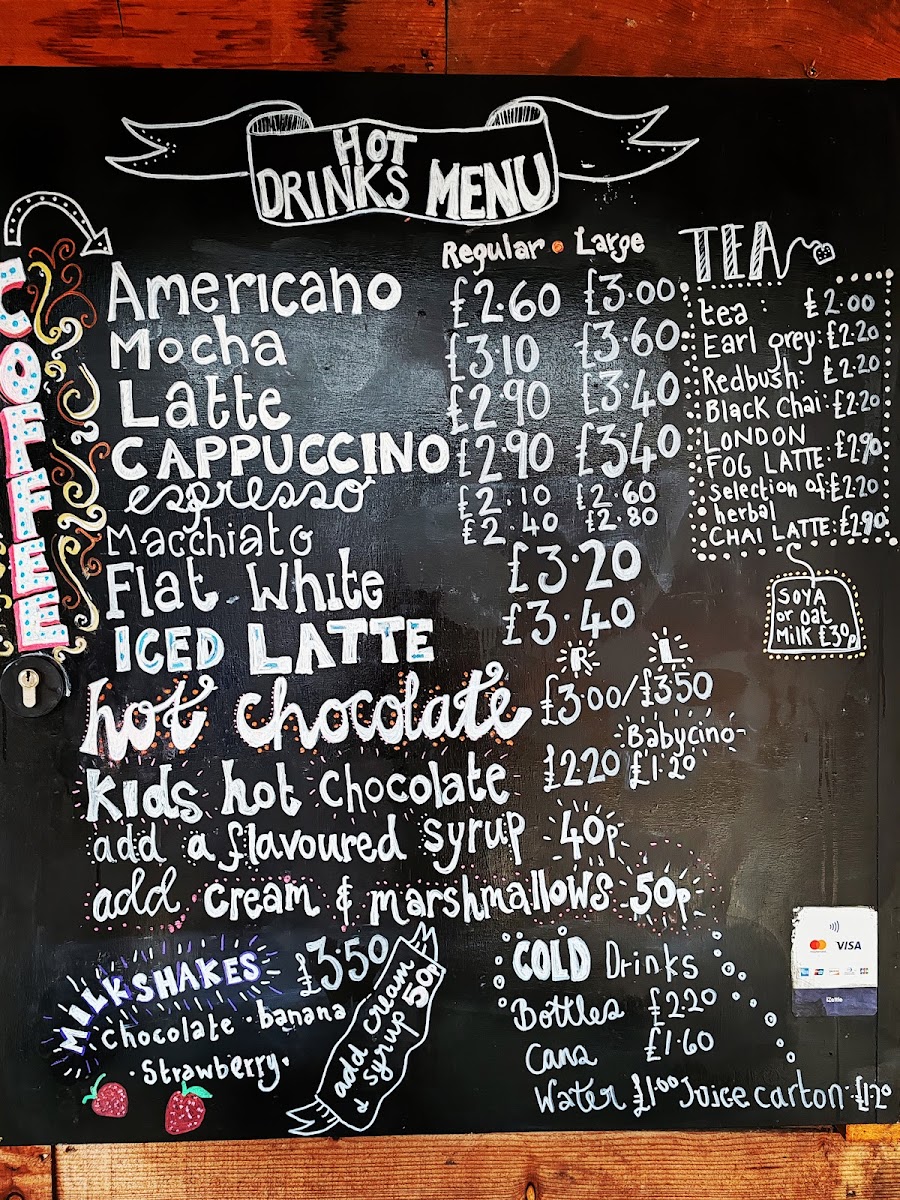 HOT
DRINKS MENU
COFFEE
Regular • Large
Americano £2.60 £3.00
Mocha £3.10 £3.60
Latte £2.90 £3.40
CAPPUCCINO £2.90 £3.40
espresso £2.10 £2.60
Macchiato £2.40 £2.80
Flat White £3.20
ICED LATTE £3.40
R L
hot chocolate £3.00/£3.50
Kids hot chocolate £220
Babycino
£1.20
add a flavoured syrup 40p
add cream & marshmallows 50p
TEA
tea: £2.00
Earl grey: £2.20
Redbush: £2.20
Black Chai: £2.20
LONDON
FOG LATTE: £2.90
Selection of £2.20
herbal
CHAI LATTE: £2.90
SOYA
or oat
Milk £30p
MILKSHAKES £3.50
chocolate • banana
• Strawberry •
add cream
& syrup 50p
COLD Drinks
Bottles £2.20
Cans £1.60
Water £1.00 Juice carton: £1.20
VISA
iZettle